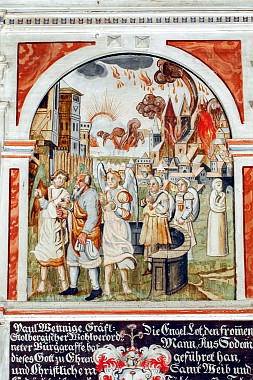 Paul Wennige, Gräfl:
Stolbergischer Wohlverord
neter Bürgraffe hat
dieses Gott zu Ehren
und Christlichem
Die Engel Lot den fromen
Mann Aus Sodom
geführet han,
Samt Weib und